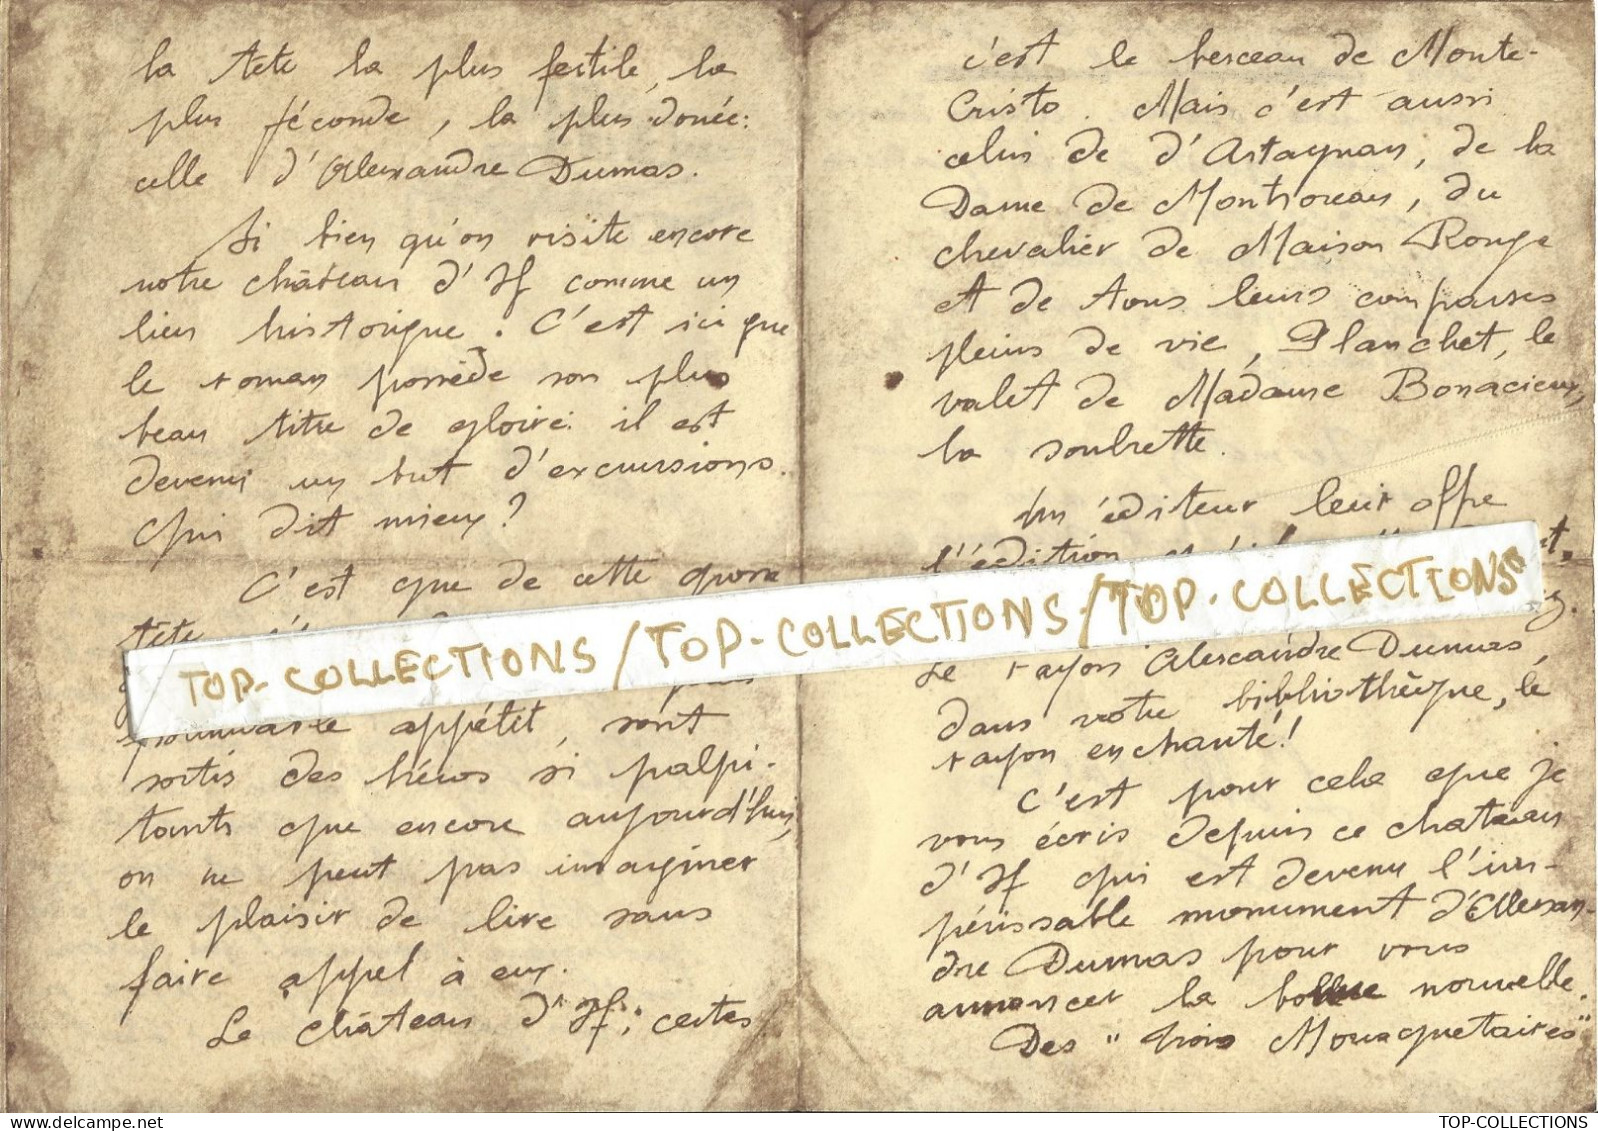 la tête la plus fertile, la
plus féconde, la plus donée:
celle d'Alexandre Dumas.
Si bien qu'on visite encore
notre château d'If comme un
lieu historique. C'est ici que
le roman possède son plus
beau titre de gloire: il est
devenu un but d'excursions.
Qui dit mieux?
C'est que de cette grosse
tête
appétit, sont
sortis des héros si palpi-
tants que encore aujourd'hui,
on ne peut pas imaginer
le plaisir de lire sans
faire appel à eux.
Le château d'If, certes
c'est le berceau de Monte-
Cristo. Mais c'est aussi
celui de d'Artagnan, de la
Dame de Montsoreau, du
chevalier de Maison Rouge
et de tous leurs comparses
pleins de vie, Planchet, le
valet de Madame Bonacieux,
la soubrette.
Un éditeur leur offre
l'édition
Le rayon Alexandre Dumas,
dans votre bibliothèque, le
rayon enchanté!
C'est pour cela que je
vous écris depuis ce chateau
d'If qui est devenu l'im-
périssable monument d'Alexan-
dre Dumas pour vous
annoncer la bonne nouvelle.
Des "trois Mousquetaires"
TOP-COLLECTIONS / TOP-COLLECTIONS / TOP-COLLECTIONS
TOP-COLLECTIONS